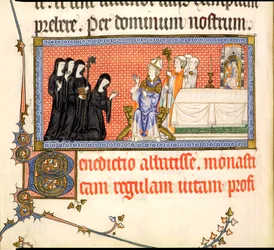 prelere. Per dominum nostrum.
Benedictio abbatisse. monasti
cam regulam vitam profi